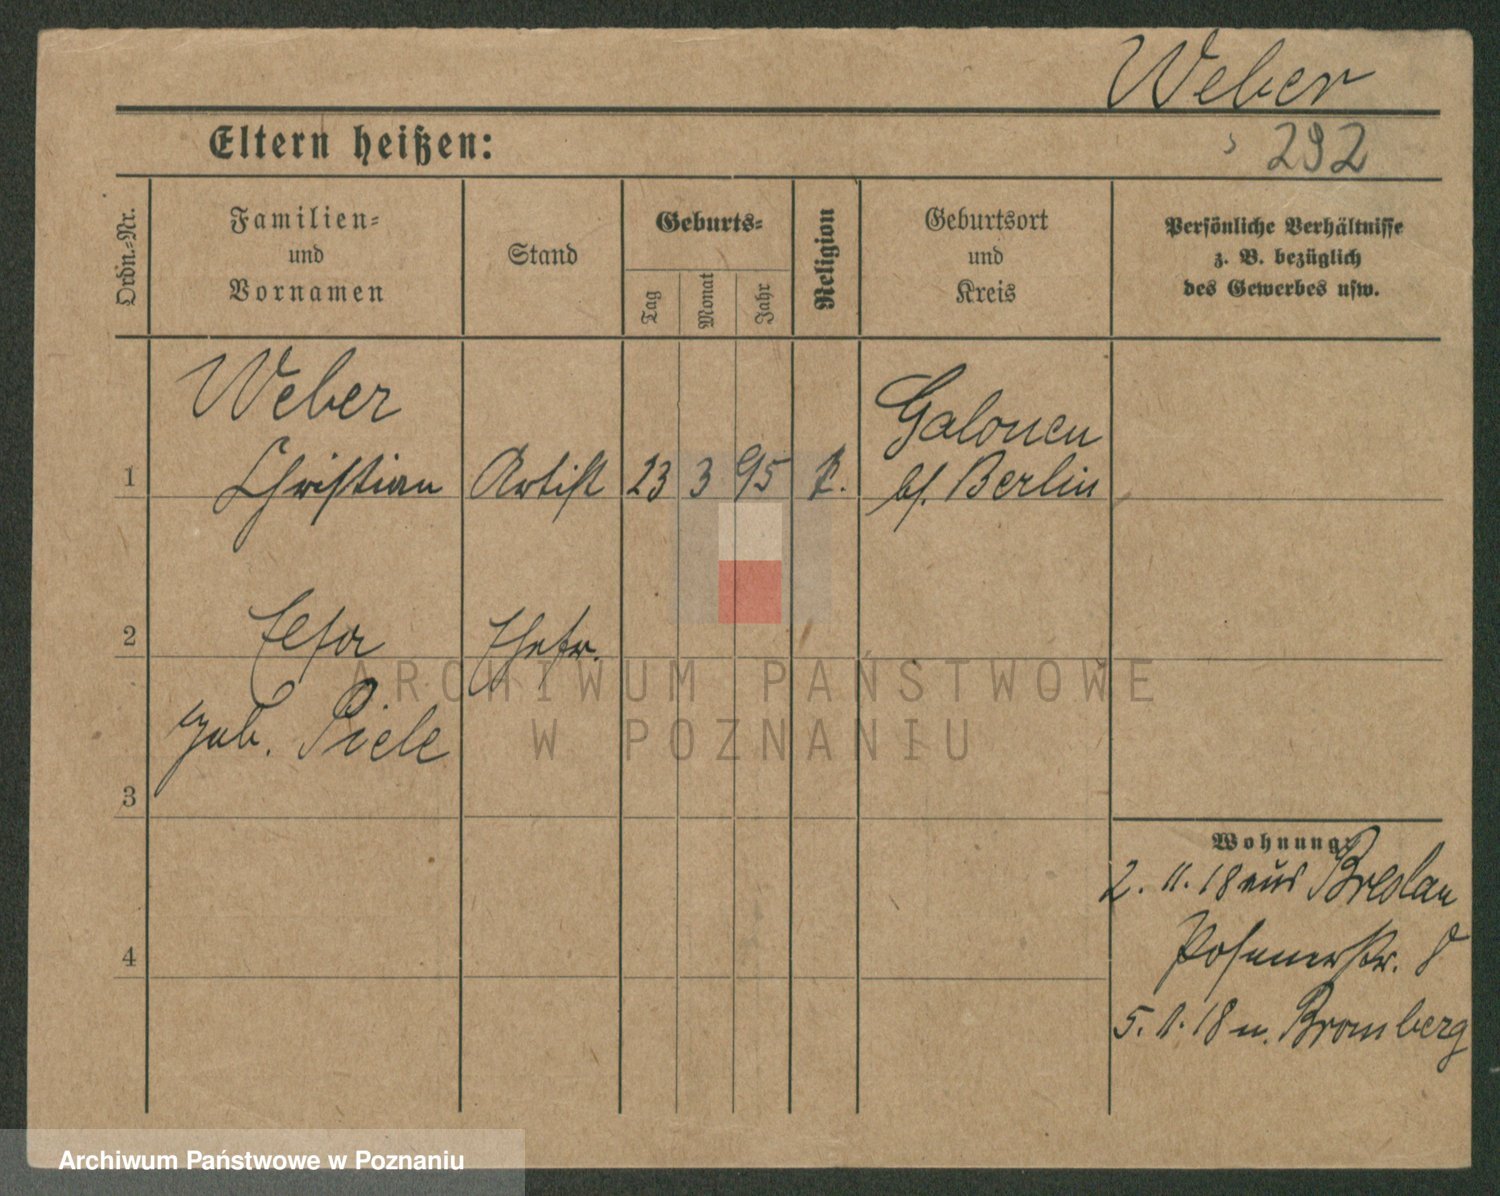 Weber
292
Eltern heißen:
Ordn.-Nr.
Familien-
und
Vornamen
Stand
Geburts-
Tag
Monat
Jahr
Religion
Geburtsort
und
Kreis
Persönliche Verhältnisse
z. B. bezüglich
des Gewerbes usw.
Weber
1 Christian Artist 23 3 95
Galonen
bf. Berlin
2 Elsa Ehefr.
geb. Piele
3
4
Wohnung:
2. 11. 18 aus Breslau
Posenerstr. 8
5. 1. 18 n. Bromberg
ARCHIWUM PAŃSTWOWE
W POZNANIU
Archiwum Państwowe w Poznaniu